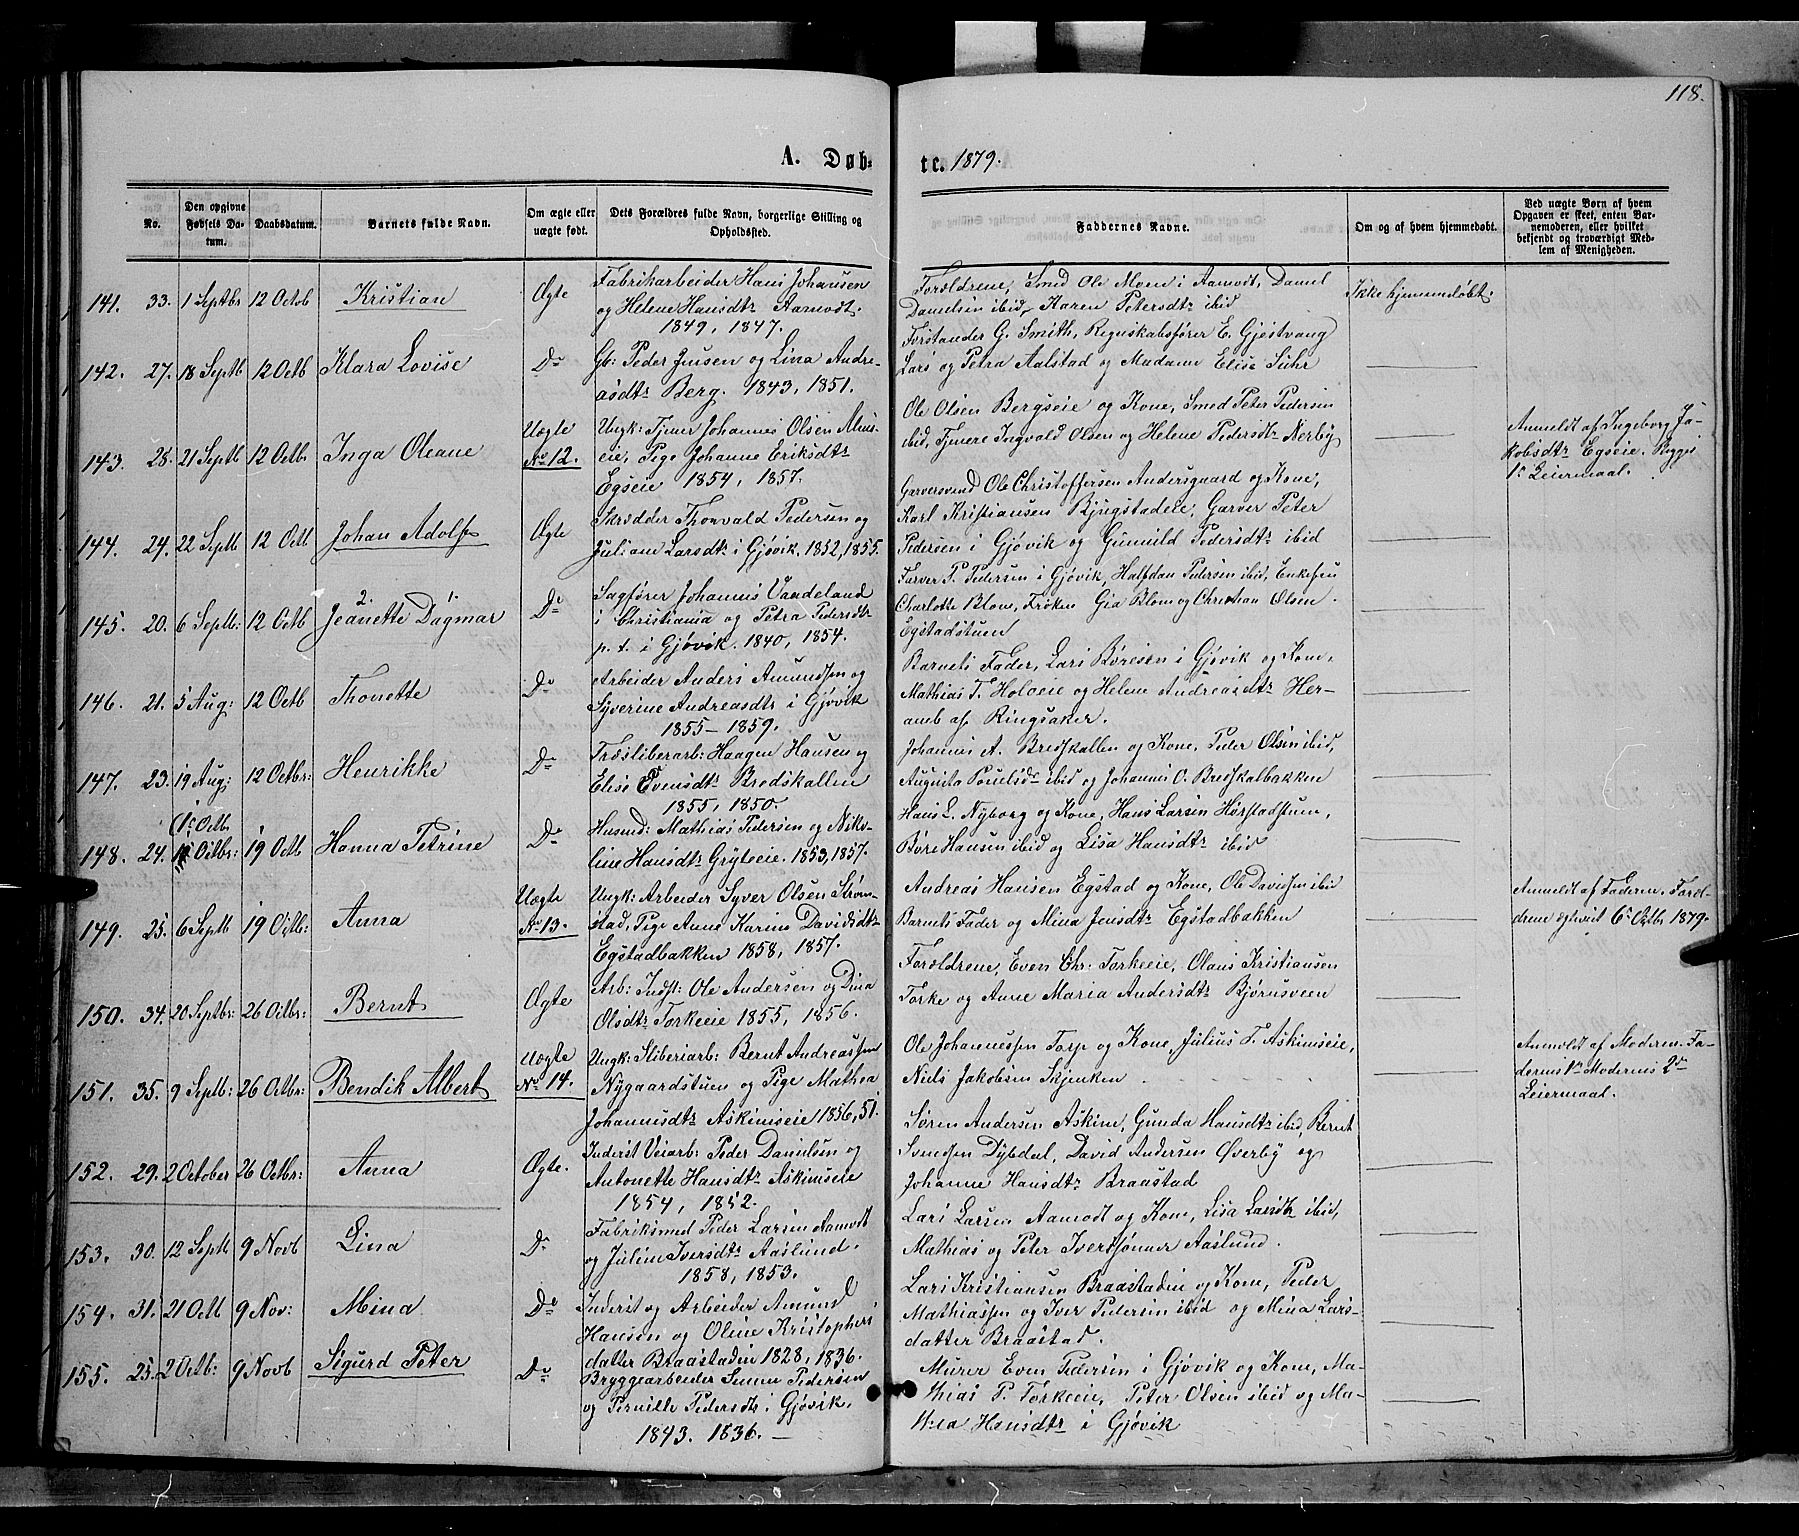 118.
A. Døb- te. 1879.
No.
Den opgivne Fødsels Datum.
Daabsdatum.
Barnets fulde Navn.
Om ægte eller uægte født.
Dets Forældres fulde Navn, borgerlige Stilling og Opholdssted.
Faddernes Navne.
Om og af hvem hjemmedøbt.
Ved uægte Børn af hvem Opgaven er skeet, enten Barnemoderen, eller hvilket bekjendt og troværdigt Medlem af Menigheden.
141. 33. 1 Septbr 12 Octob Kristian Ægte
Fabrikarbeider Hans Johansen
og Helene Hansdtr Aamodt.
1849, 1847.
Forældrene, Smed Ole Moen i Aamodt, Daniel
Danielsen ibid, Karen Petersdtr ibid
Ikke hjemmedøbt.
142. 27. 18 Septb 12 Octb Klara Lovise Do
Gb: Peder Jensen og Lina Andre-
asdtr Berg. 1843, 1851.
Forstander G. Smith, Regnskabsfører E. Gjestvang
Lars og Petra Aalstad og Madame Elise Suhr
143. 28. 21 Septb 12 Octb. Inga Oleane Uægte No 12.
Ungk: Tjener Johannes Olsen
eie, Pige Johanne Eriksdtr
Egseie 1854, 1857.
Ole Olsen Bergseie og Kone, Smed Peter Pedersen
ibid, Tjenere Ingvald Olsen og Helene Pedersdtr Nerby
Anmeldt af Ingeborg Ja-
kobsdtr Egseie. Begges
1e Leiermaal.
144. 24. 22 Septb 12 Octb Johan Adolf Ægte
Skrædder Thorvald Pedersen og
Juliane Larsdtr i Gjøvik. 1852, 1855.
Garversvend Ole Christoffersen Andersgaard og Kone,
Karl Kristiansen Bjugstadeie, Garver Peter
Pedersen i Gjøvik og Gunnild Pedersdtr ibid
145. 20. 6 Septb: 12 Octb Jeanette Dagmar 2. 1. Do
Sagfører Johannes Vandeland
i Christiania og Petra Pedersdtr
p. t. i Gjøvik. 1840, 1854.
Farver P. Pedersen i Gjøvik, Halfdan Pedersen ibid, Enkefru
Charlotte Blom, Frøken Gia Blom og Christian Olsen
Egstadstuen
146. 21. 5 Aug: 12 Octb Thonette Do
Arbeider Anders Amundsen og
Syverine Andreasdtr i Gjøvik
1855 – 1859.
Barnets Fader, Lars Børesen i Gjøvik og Kone,
Mathias T. Holoeie og Helene Andreasdtr Her-
amb af Ringsaker.
147. 23. 19 Aug: 12 Octbr: Henrikke Do
Træsliberarb: Haagen Hansen og
Elise Evensdtr Bredskallen
1855, 1850.
Johannes A. Bredskallen og Kone, Peder Olsen ibid,
Augusta Poulsdr ibid og Johannes O. Bredskalbakken
148. 24. (1e Octb. Octbr: 19 Octb Hanna Petrine Do
Husmd: Mathias Pedersen og Niko-
line Hansdtr Gryteeie. 1853, 1857.
Hans L. Nyborg og Kone, Hans Larsen Hørstadstuen,
Børe Hansen ibid og Lisa Hansdtr ibid
149. 25. 6 Septb 19 Octb: Anna Uægte No 13.
Ungk: Arbeider Syver Olsen Strøm-
stad, Pige Anne Karine Davidsdtr
Egstadbakken 1858, 1857.
Andreas Hansen Egstad og Kone, Ole Davidsen ibid
Barnets Fader og Mina Jensdtr Egstadbakken
Anmeldt af Faderen. Foræl-
drene egteviet 6e Octb. 1879.
150. 34. 20 Septbr: 26 Octbr: Bernt Ægte
Arb: Indst: Ole Andersen og Dina
Olsdtr Torkeeie 1855, 1856.
Forældrene, Even Chr: Torkeeie, Olaus Kristiansen
Torke og Anne Maria Andersdtr Bjørnsveen
151. 35. 9 Septb: 26 Octbr: Bendik Albert Uægte No 14.
Ungk: Sliberiarb: Bernt Andreassen
Nygaardstuen og Pige Mathea
Johannesdtr Askimseie 1856, 51.
Ole Johannessen Torp og Kone, Julius T. Askimseie,
Niels Jakobsen Skjenken
Anmeldt af Moderen. Fa-
derens 1e Moderens 2det
Leiermaal.
152. 29. 2 October 26 Octbr: Anna Ægte.
Inderst Veiarb: Peder Danielsen og
Antonette Hansdtr Askimseie
1854, 1852.
Søren Andersen Askim, Gunda Hansdtr ibid, Bernt
Svendsen Dybdal, David Andersen Øverby og
Johanne Hansdtr Braastad
153. 30. 12 Septb 9 Novb Lina Do
Fabriksmed Peder Larsen Aamodt
og Juline Iversdtr Aaslund.
1858, 1853.
Lars Larsen Aamodt og Kone, Lisa Larsdtr ibid,
Mathias og Peter Iverssønner Aaslund.
154. 31. 21 Octb 9 Nov: Mina Do
Inderst og Arbeider Amund
Hansen og Oline Kristophers
datter Braastadeie 1828, 1836.
Lars Kristiansen Braastadeie og Kone, Peder
Mathiassen og Iver Pedersen ibid og Mina Lars-
datter Braastad.
155. 25. 2 Octb: 9 Novb Sigurd Peter Do
Bryggearbeider Pedersen
og Pernille Pedersdtr i Gjøvik.
1843. 1836. —
Murer Even Pedersen i Gjøvik og Kone, Ma-
thias P. Torkeeie, Peter Olsen ibid og Ma-
thea Hansdtr i Gjøvik